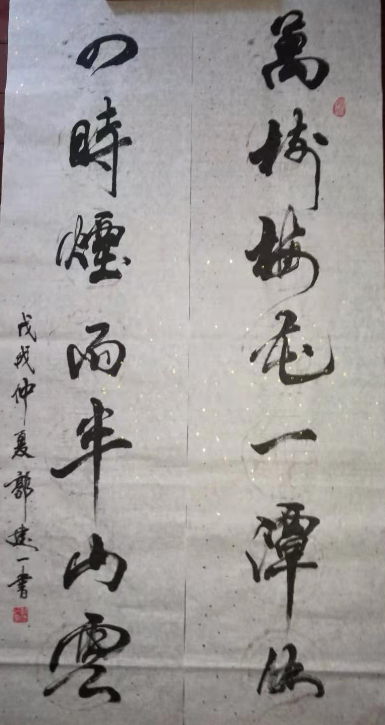 萬樹梅花一潭水
四時煙雨半山雲
戊戌仲夏郭建一書